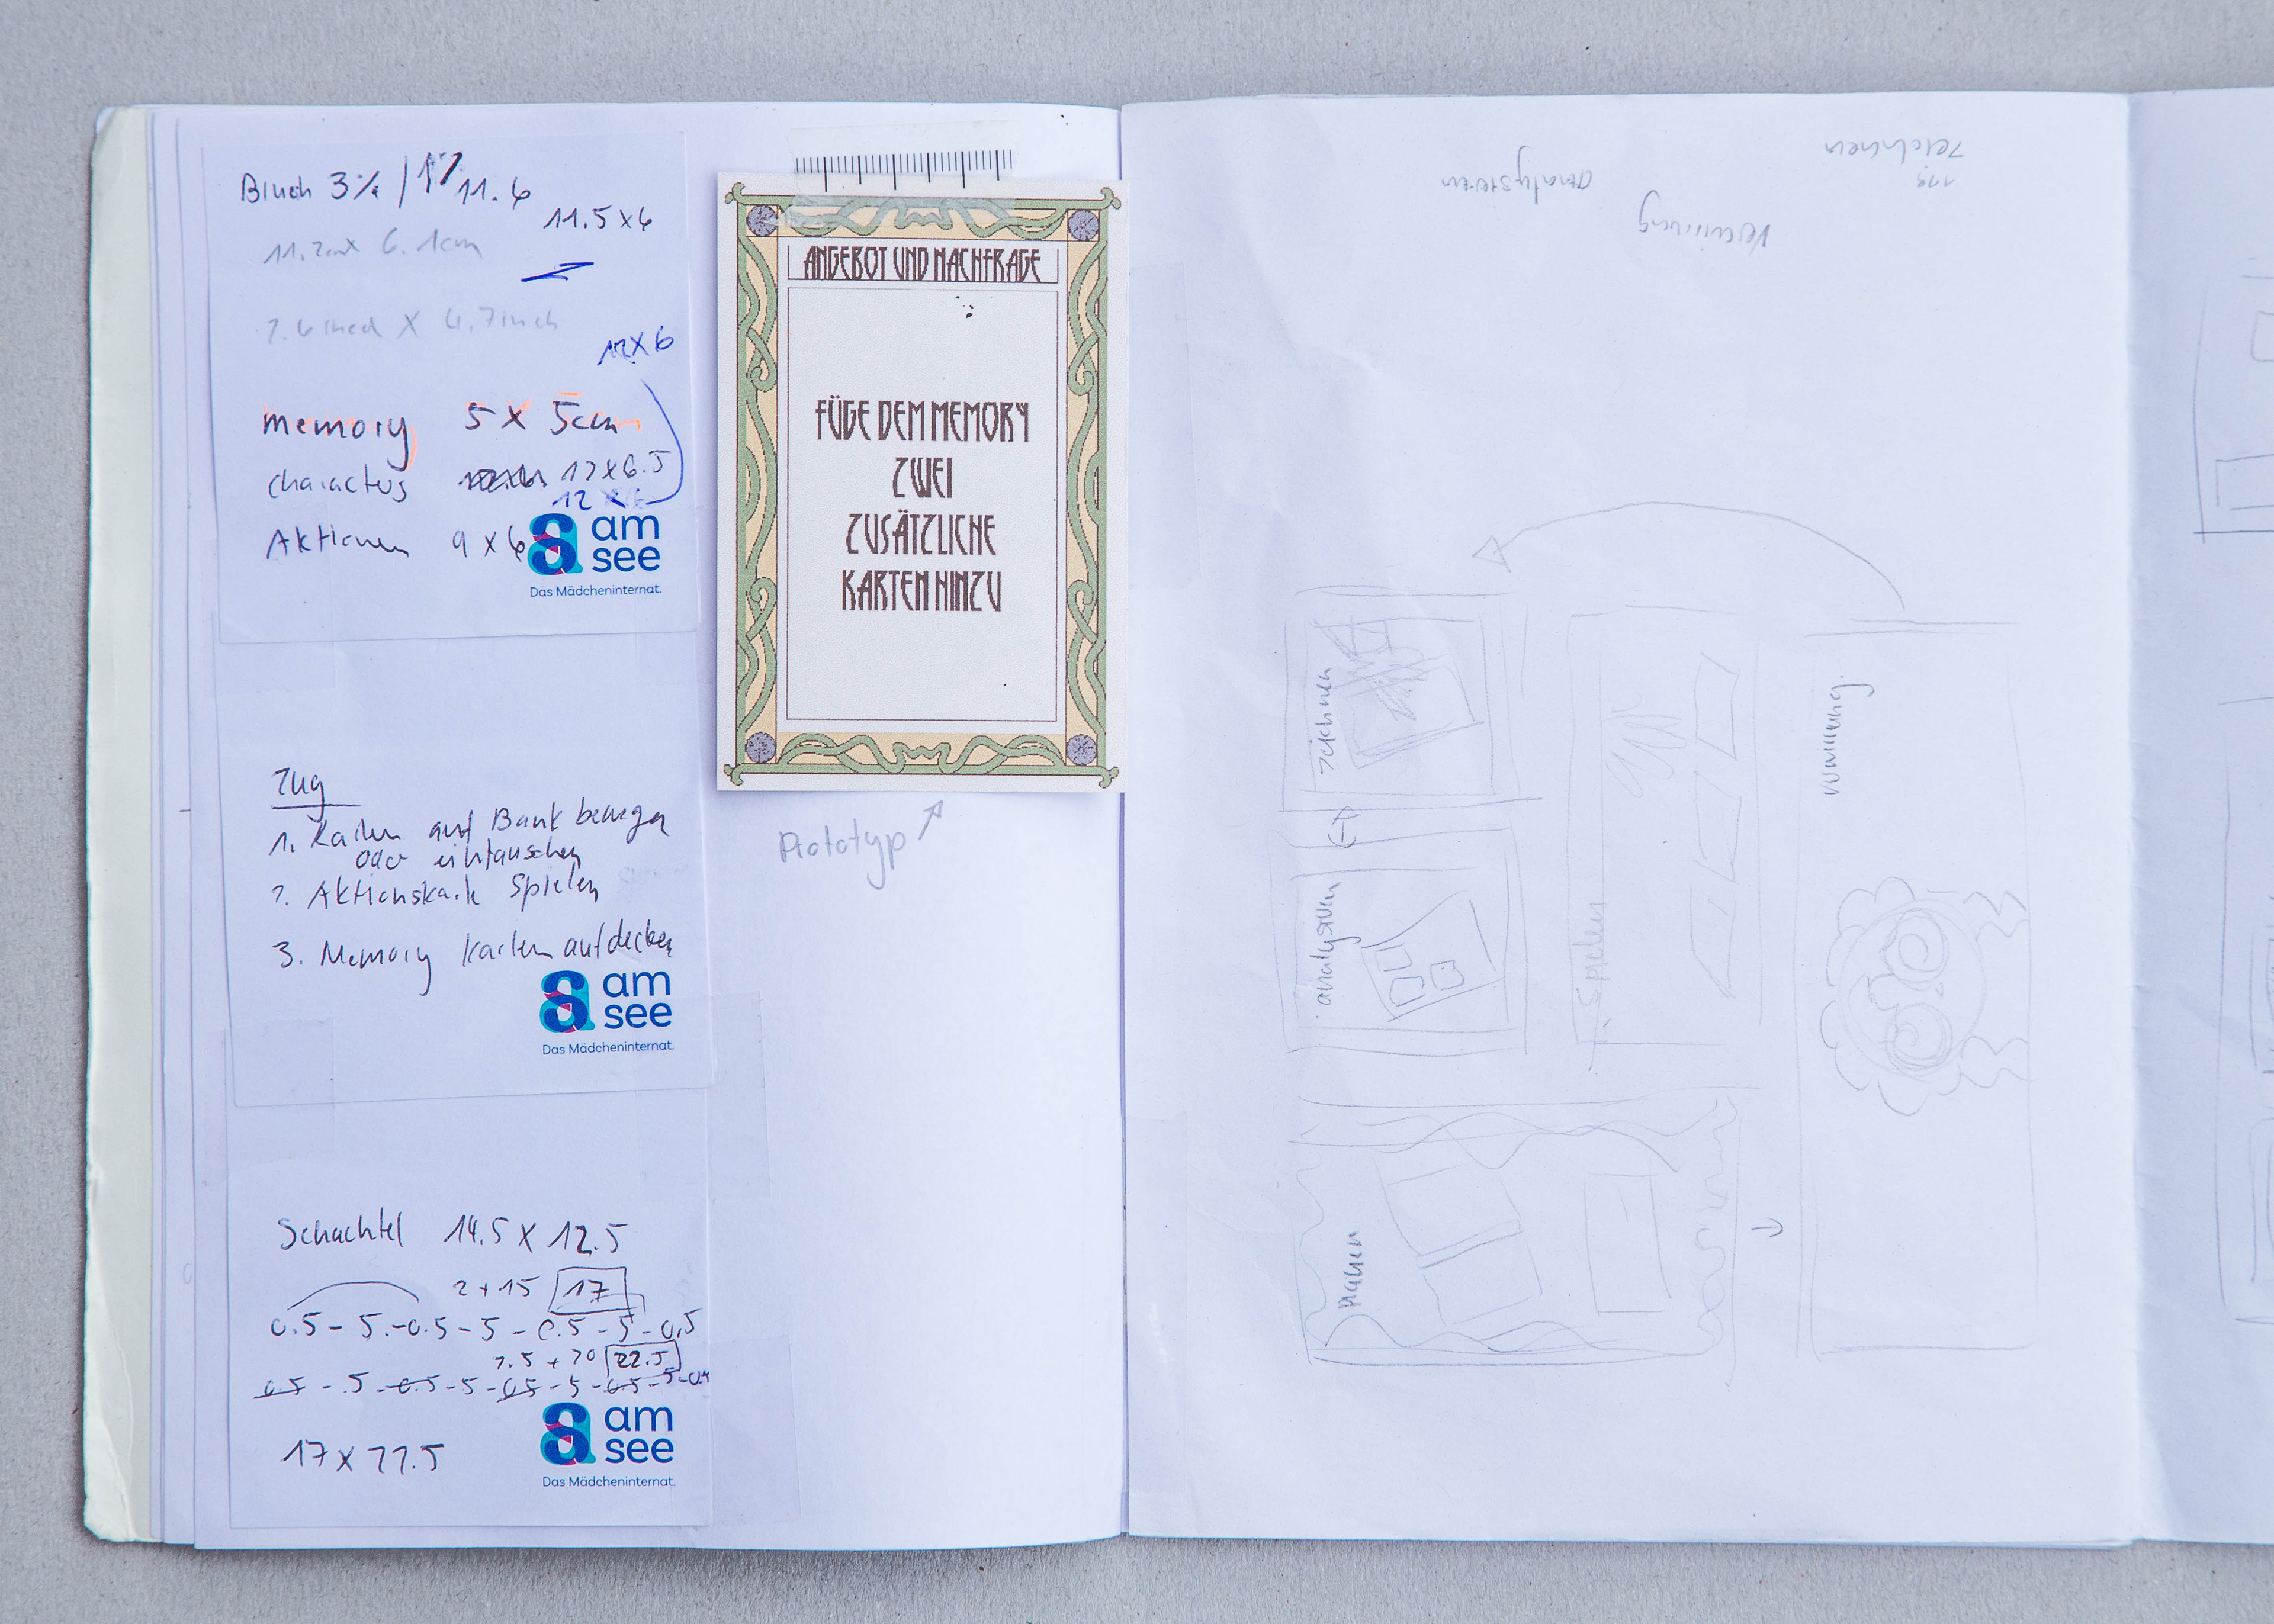 11.6
11.5 x 6
6.1cm
12 x 6
memory 5 x 5cm
characters 12 x 6.5
12 x 6
Aktionen 9 x 6
am
see
Das Mädcheninternat.
Zug
1. Karten auf Bank bewegen
oder eintauschen
2. Aktionskarte spielen
3. Memory Karten aufdecken
am
see
Das Mädcheninternat.
Schachtel 14.5 x 12.5
2 + 15 17
0.5 - 5 - 0.5 - 5 - 0.5 - 5 - 0.5
2.5 + 20 22.5
0.5 - 5 - 0.5 - 5 - 0.5 - 5 - 0.5 - 5 - 0.5
17 x 22.5
am
see
Das Mädcheninternat.
ANGEBOT UND NACHFRAGE
FÜGE DEM MEMORY
ZWEI
ZUSÄTZLICHE
KARTEN HINZU
Prototyp
zeichnen
analysieren
Verwirrung
zeichnen
analysieren
spielen
planen